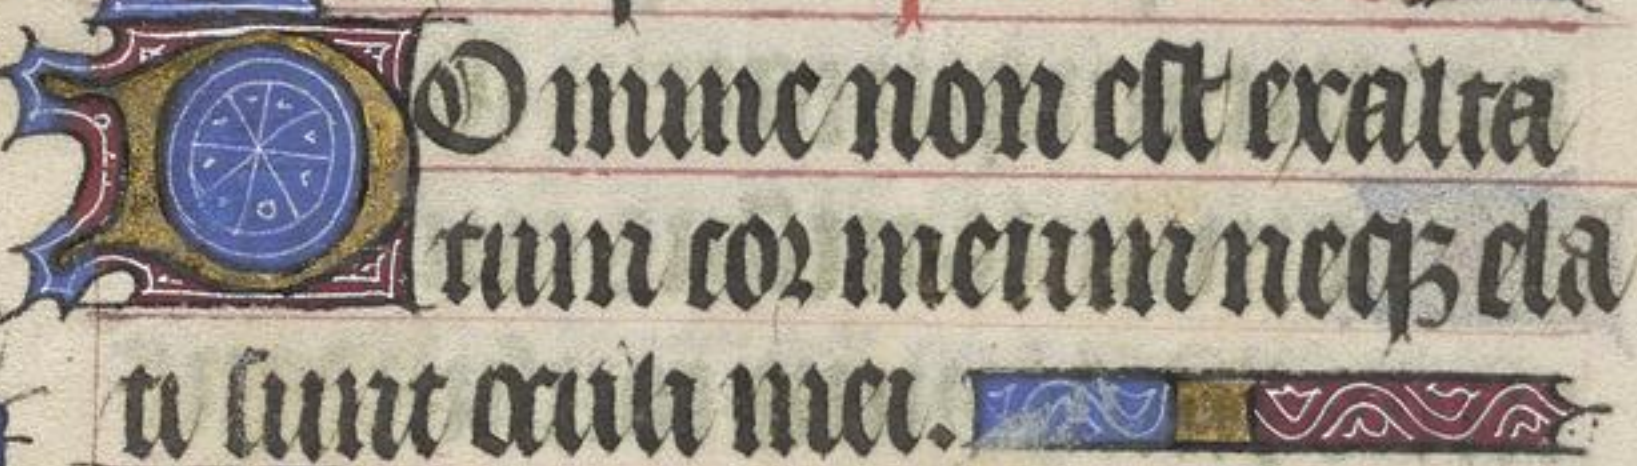 DOmine non est exalta
tum cor meum neqꝫ ela
ti sunt oculi mei.